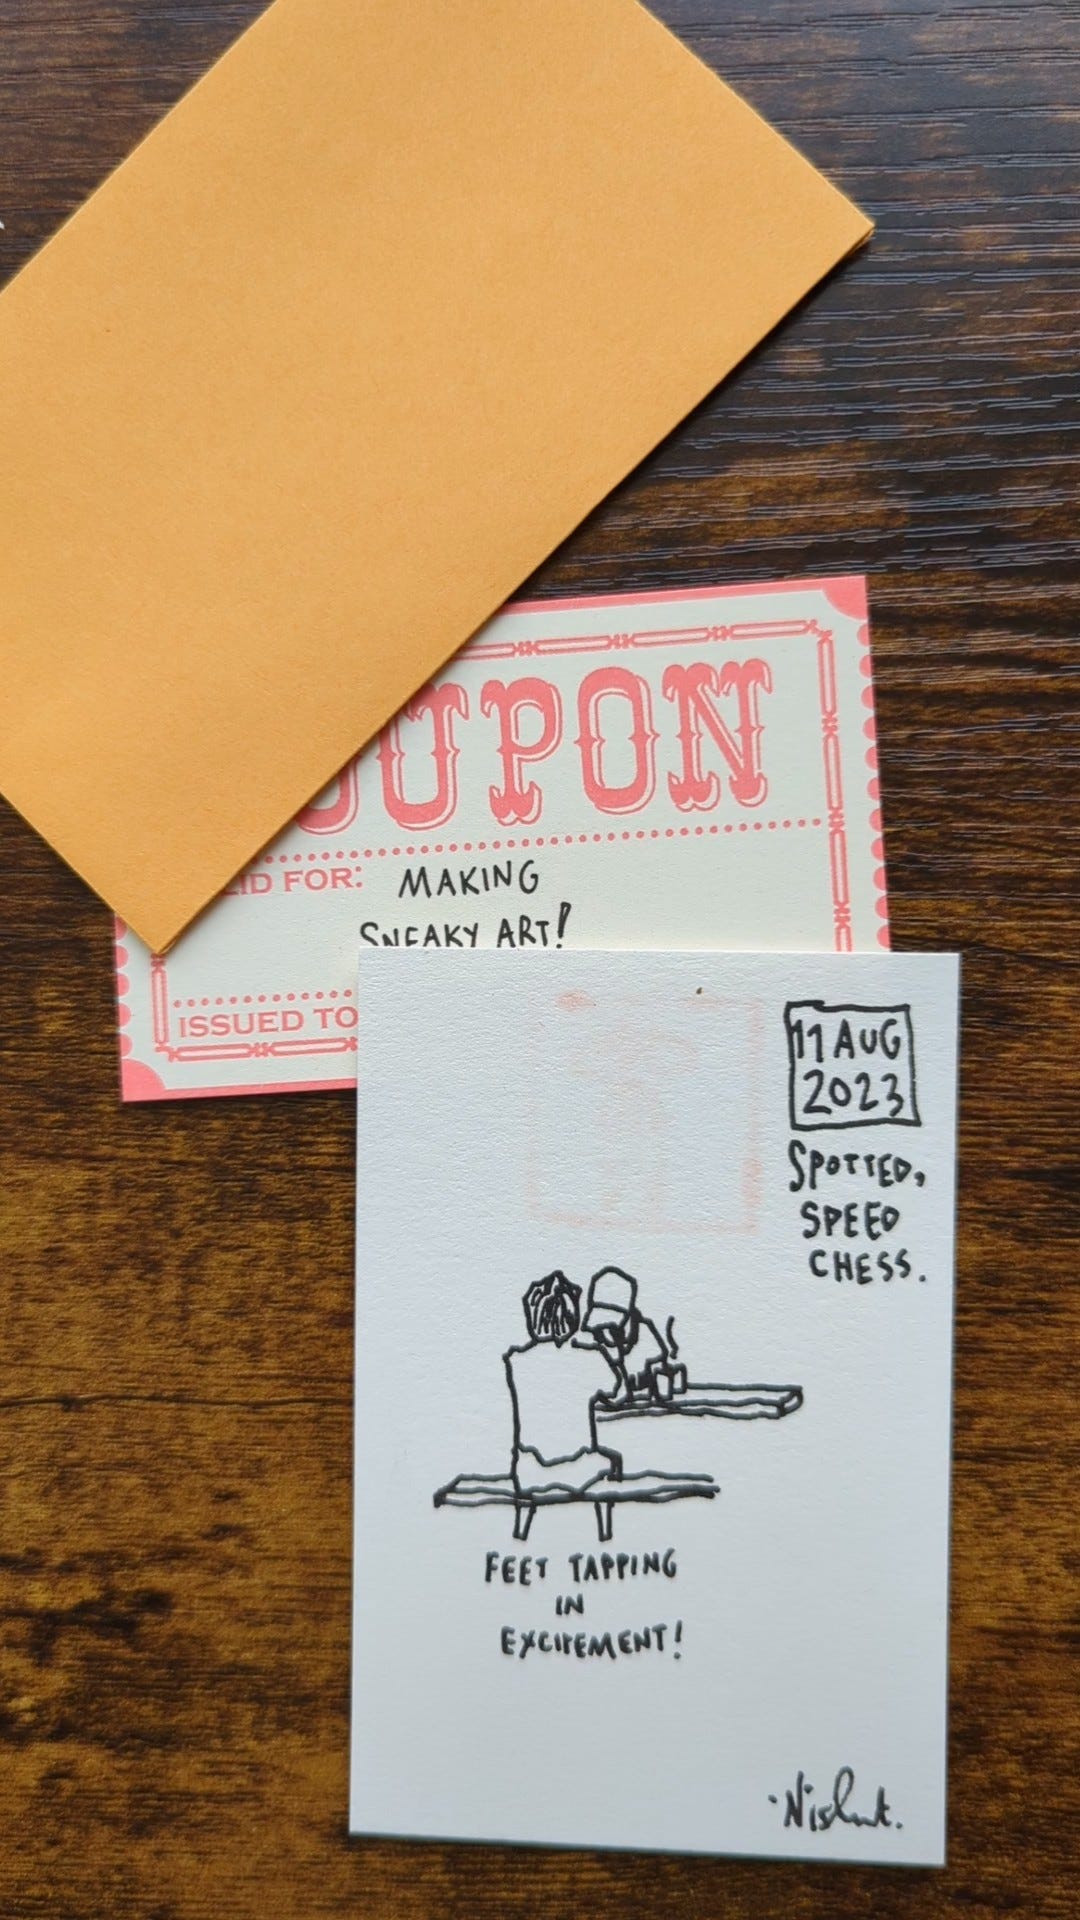 OUPON
LID FOR: MAKING
SNEAKY ART!
ISSUED TO
11 AUG
2023
SPOTTED,
SPEED
CHESS.
FEET TAPPING
IN
EXCITEMENT!
Nishant.